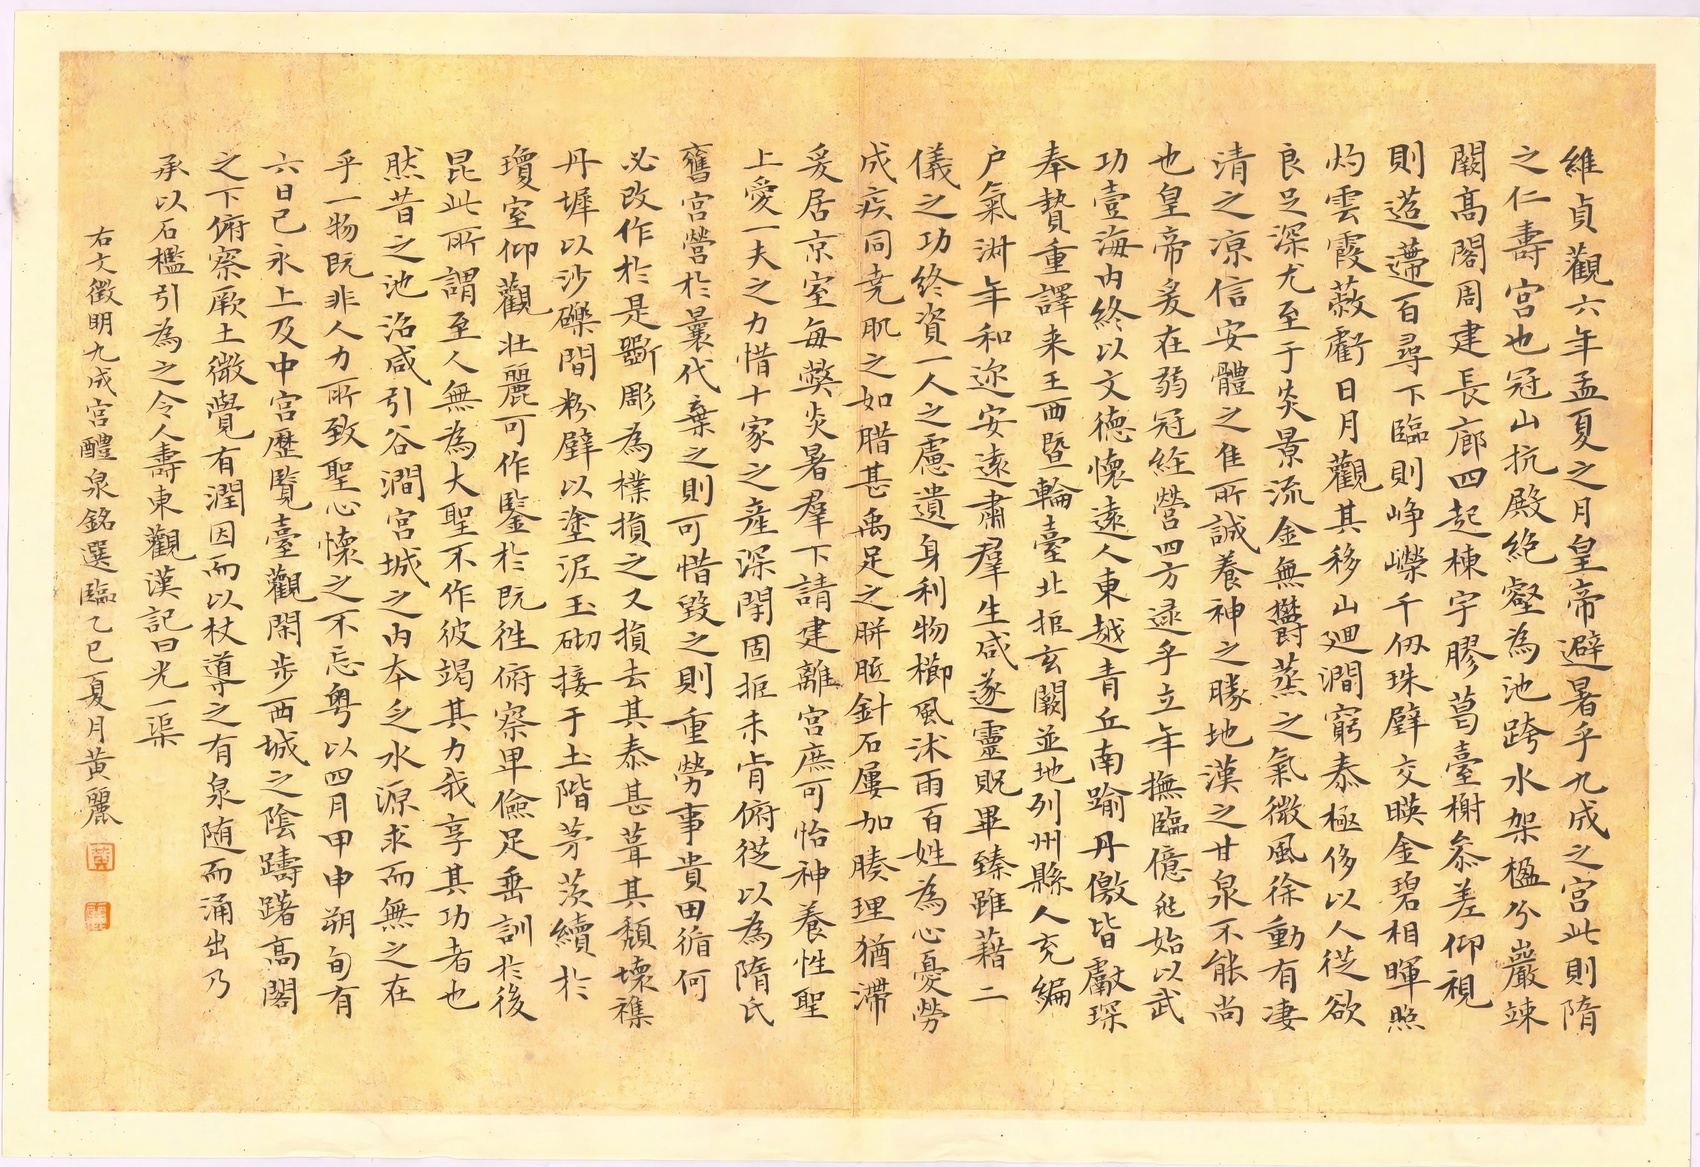 維貞觀六年孟夏之月皇帝避暑乎九成之宮此則隋
之仁壽宮也冠山抗殿絶壑為池跨水架楹分巖竦
闕高閣周建長廊四起棟宇膠葛臺榭叅差仰視
則迢遰百尋下臨則崢嶸千仞珠璧交暎金碧相暉照
灼雲霞蔽虧日月觀其移山廻澗窮泰極侈以人從欲
良足深尤至于炎景流金無欝蒸之氣微風徐動有凄
清之涼信安體之佳所誠養神之勝地漢之甘泉不能尚
也皇帝爰在弱冠經營四方逮乎立年撫臨億兆始以武
功壹海内終以文德懷遠人東越青丘南踰丹儌皆獻琛
奉贄重譯来王西暨輪臺北拒玄闕並地列州縣人充編
户氣淑年和迩安遠肅羣生咸遂靈貺畢臻雖藉二
儀之功終資一人之慮遺身利物櫛風沐雨百姓為心憂勞
成疾同堯肌之如腊甚禹足之胼胝針石屢加腠理猶滯
爰居京室每弊炎暑羣下請建離宮庶可怡神養性聖
上愛一夫之力惜十家之産深閇固拒未肯俯從以為隋氏
舊宮營於曩代棄之則可惜毀之則重勞事貴因循何
必改作於是斵彫為樸損之又損去其泰甚葺其頹壞襍
丹墀以沙礫間粉壁以塗泥玉砌接于土階茅茨續於
瓊室仰觀壯麗可作鑒於既徃俯察卑儉足垂訓於後
昆此所謂至人無為大聖不作彼竭其力我享其功者也
然昔之池沼咸引谷澗宮城之内本乏水源求而無之在
乎一物既非人力所致聖心懷之不忘粤以四月甲申朔旬有
六日己永上及中宮歷覽臺觀閑步西城之陰躊躇高閣
之下俯察厥土微覺有潤因而以杖導之有泉随而涌出乃
承以石檻引為之令人壽東觀漢記曰光一渠
右文徵明九成宮醴泉銘選臨乙巳夏月黄麗